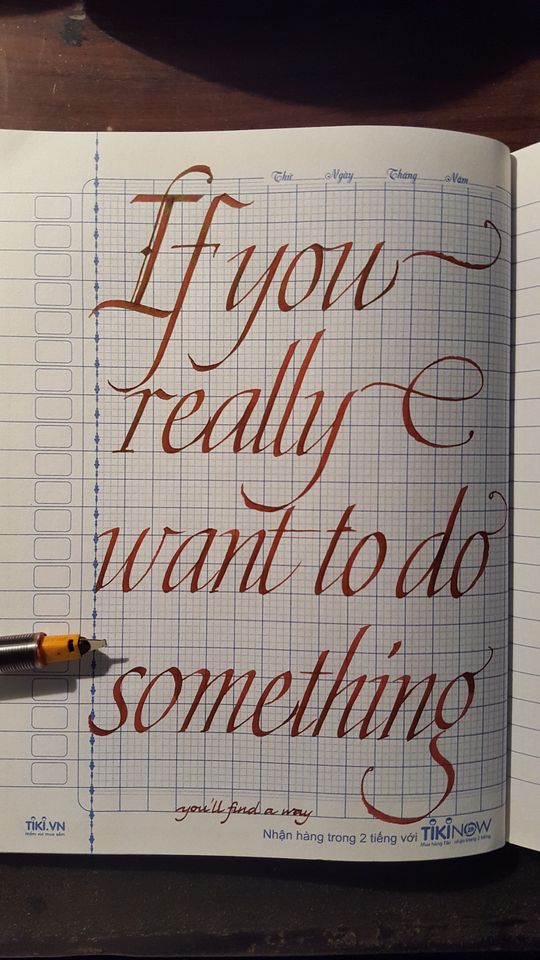 Thứ Ngày Tháng Năm
If you
really
want to do
something
you'll find a way
TIKI.VN
Nhận hàng trong 2 tiếng với TIKINOW